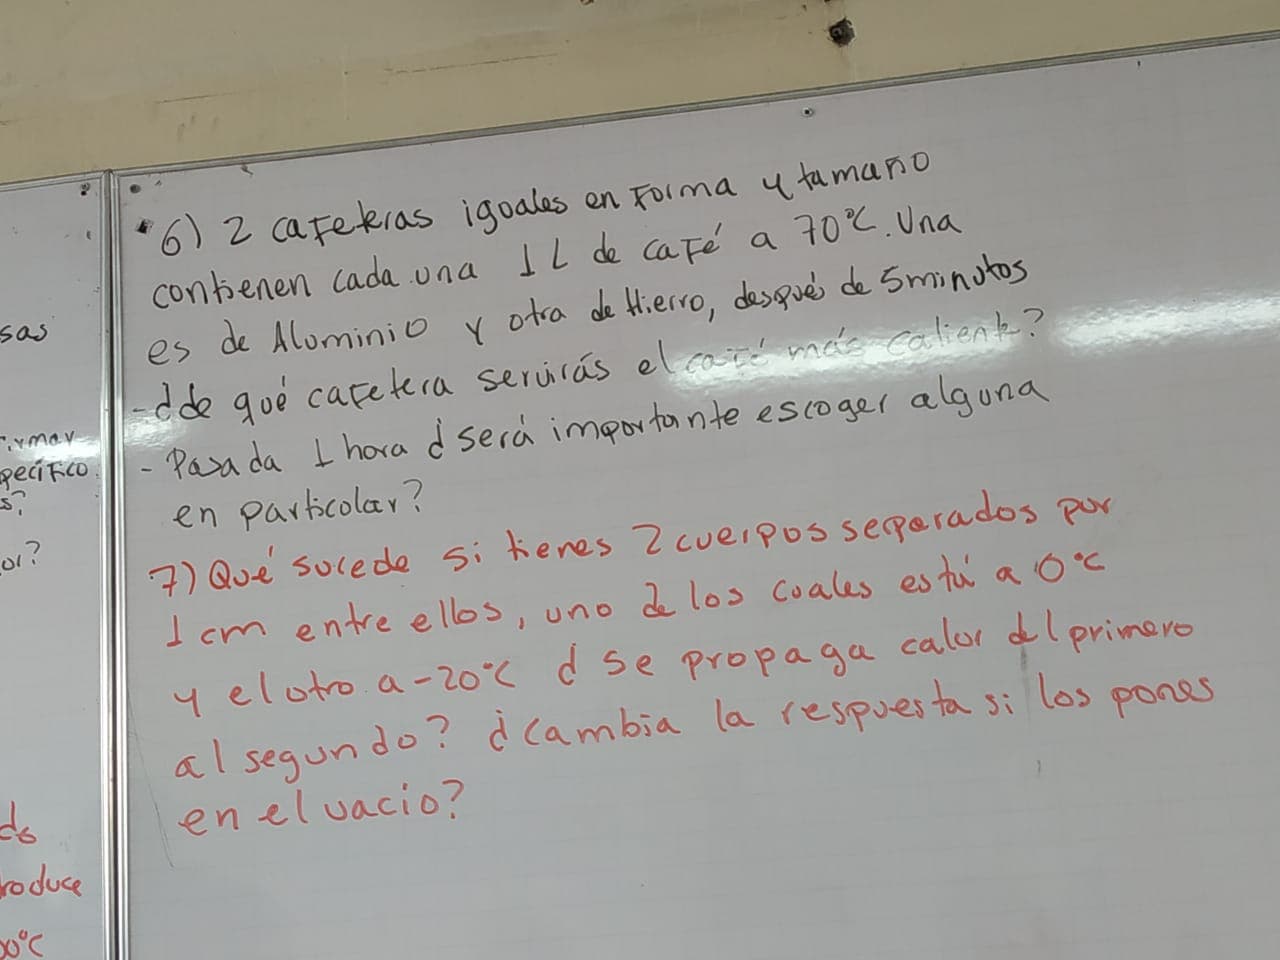 6) 2 cafeteras iguales en Forma y tamaño
contienen cada una 1 L de café a 70°C. Una
es de Aluminio y otra de Hierro, después de 5 minutos
- ¿de qué cafetera servirás el café más caliente?
- Pasada 1 hora ¿será importante escoger alguna
en particular?
7) Qué sucede si tienes 2 cuerpos separados por
1 cm entre ellos, uno de los cuales está a 0°C
y el otro a -20°C ¿ se propaga calor del primero
al segundo? ¿Cambia la respuesta si los pones
en el vacio?
sas
pecífico
s?
or?
do
roduce
00°C